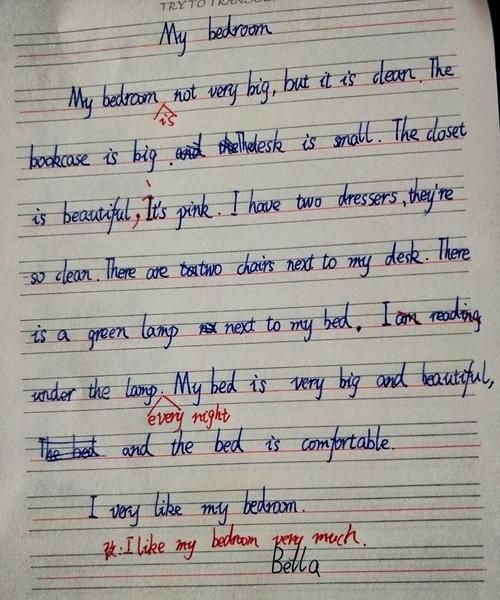 TRY TO TRANSCEN
My bedroom
My bedroom not very big, but it is clean. The
is
bookcase is big . and the The desk is small. The closet
is beautiful, It's pink. I have two dressers, they're
so clean. There are two chairs next to my desk. There
is a green lamp next to my bed. I am reading
under the lamp. My bed is very big and beautiful,
every night
The bed and the bed is comfortable.
I very like my bedroom.
改: I like my bedroom very much.
Bella